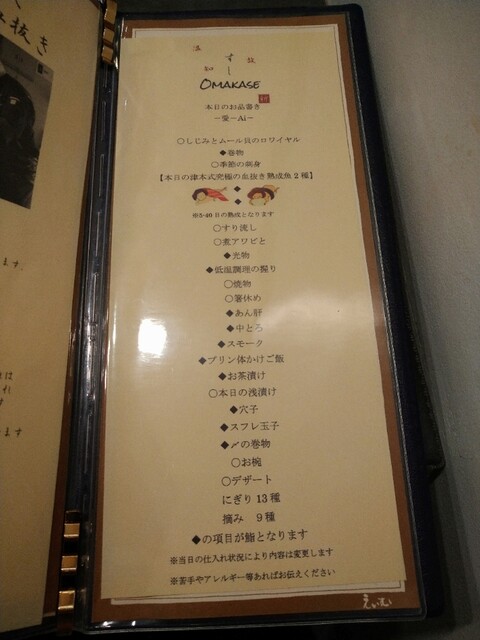 抜き
すし
OMAKASE
本日のお品書き
~愛~Ai~
〇しじみとムール貝のロワイヤル
◆巻物
〇季節の刺身
【本日の津本式究極の血抜き熟成魚2種】
◆
◆
※5-40日の熟成となります
〇すり流し
〇煮アワビと
◆光物
◆低温調理の握り
〇焼物
〇箸休め
◆あん肝
◆中とろ
◆スモーク
◆プリン体かけご飯
◆お茶漬け
〇本日の浅漬け
◆穴子
◆スフレ玉子
◆〆の巻物
〇お椀
〇デザート
にぎり13種
摘み 9種
◆の項目が鮨となります
※当日の仕入れ状況により内容は変更します
※苦手やアレルギー等あればお伝えください
ます。
ます